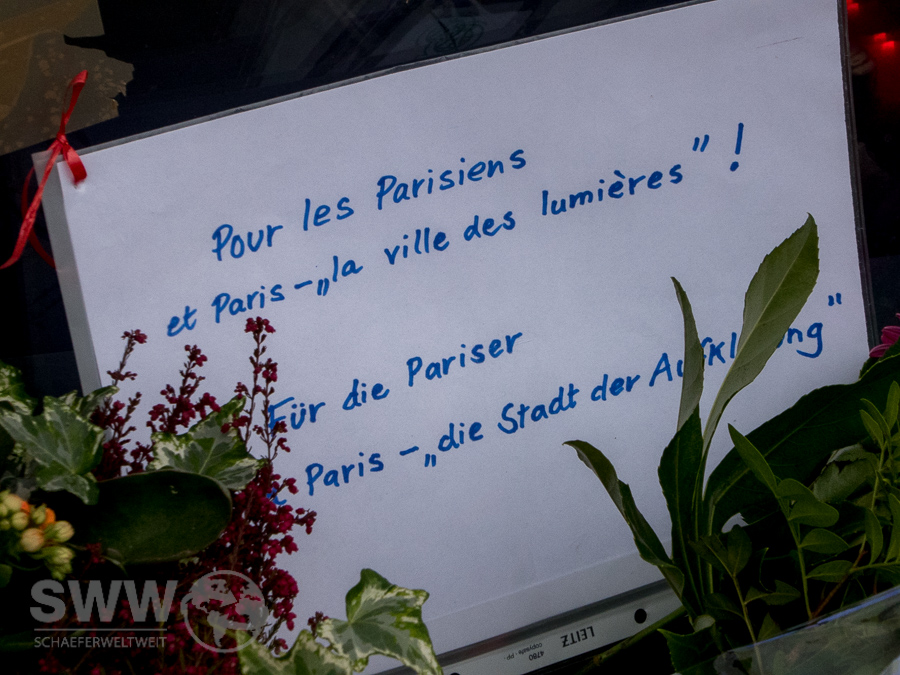 Pour les Parisiens
et Paris - „la ville des lumières” !
Für die Pariser
Paris - „die Stadt der Aufklärung”
LEITZ
4780
copysafe - pp
SWW
SCHAEFERWELTWEIT